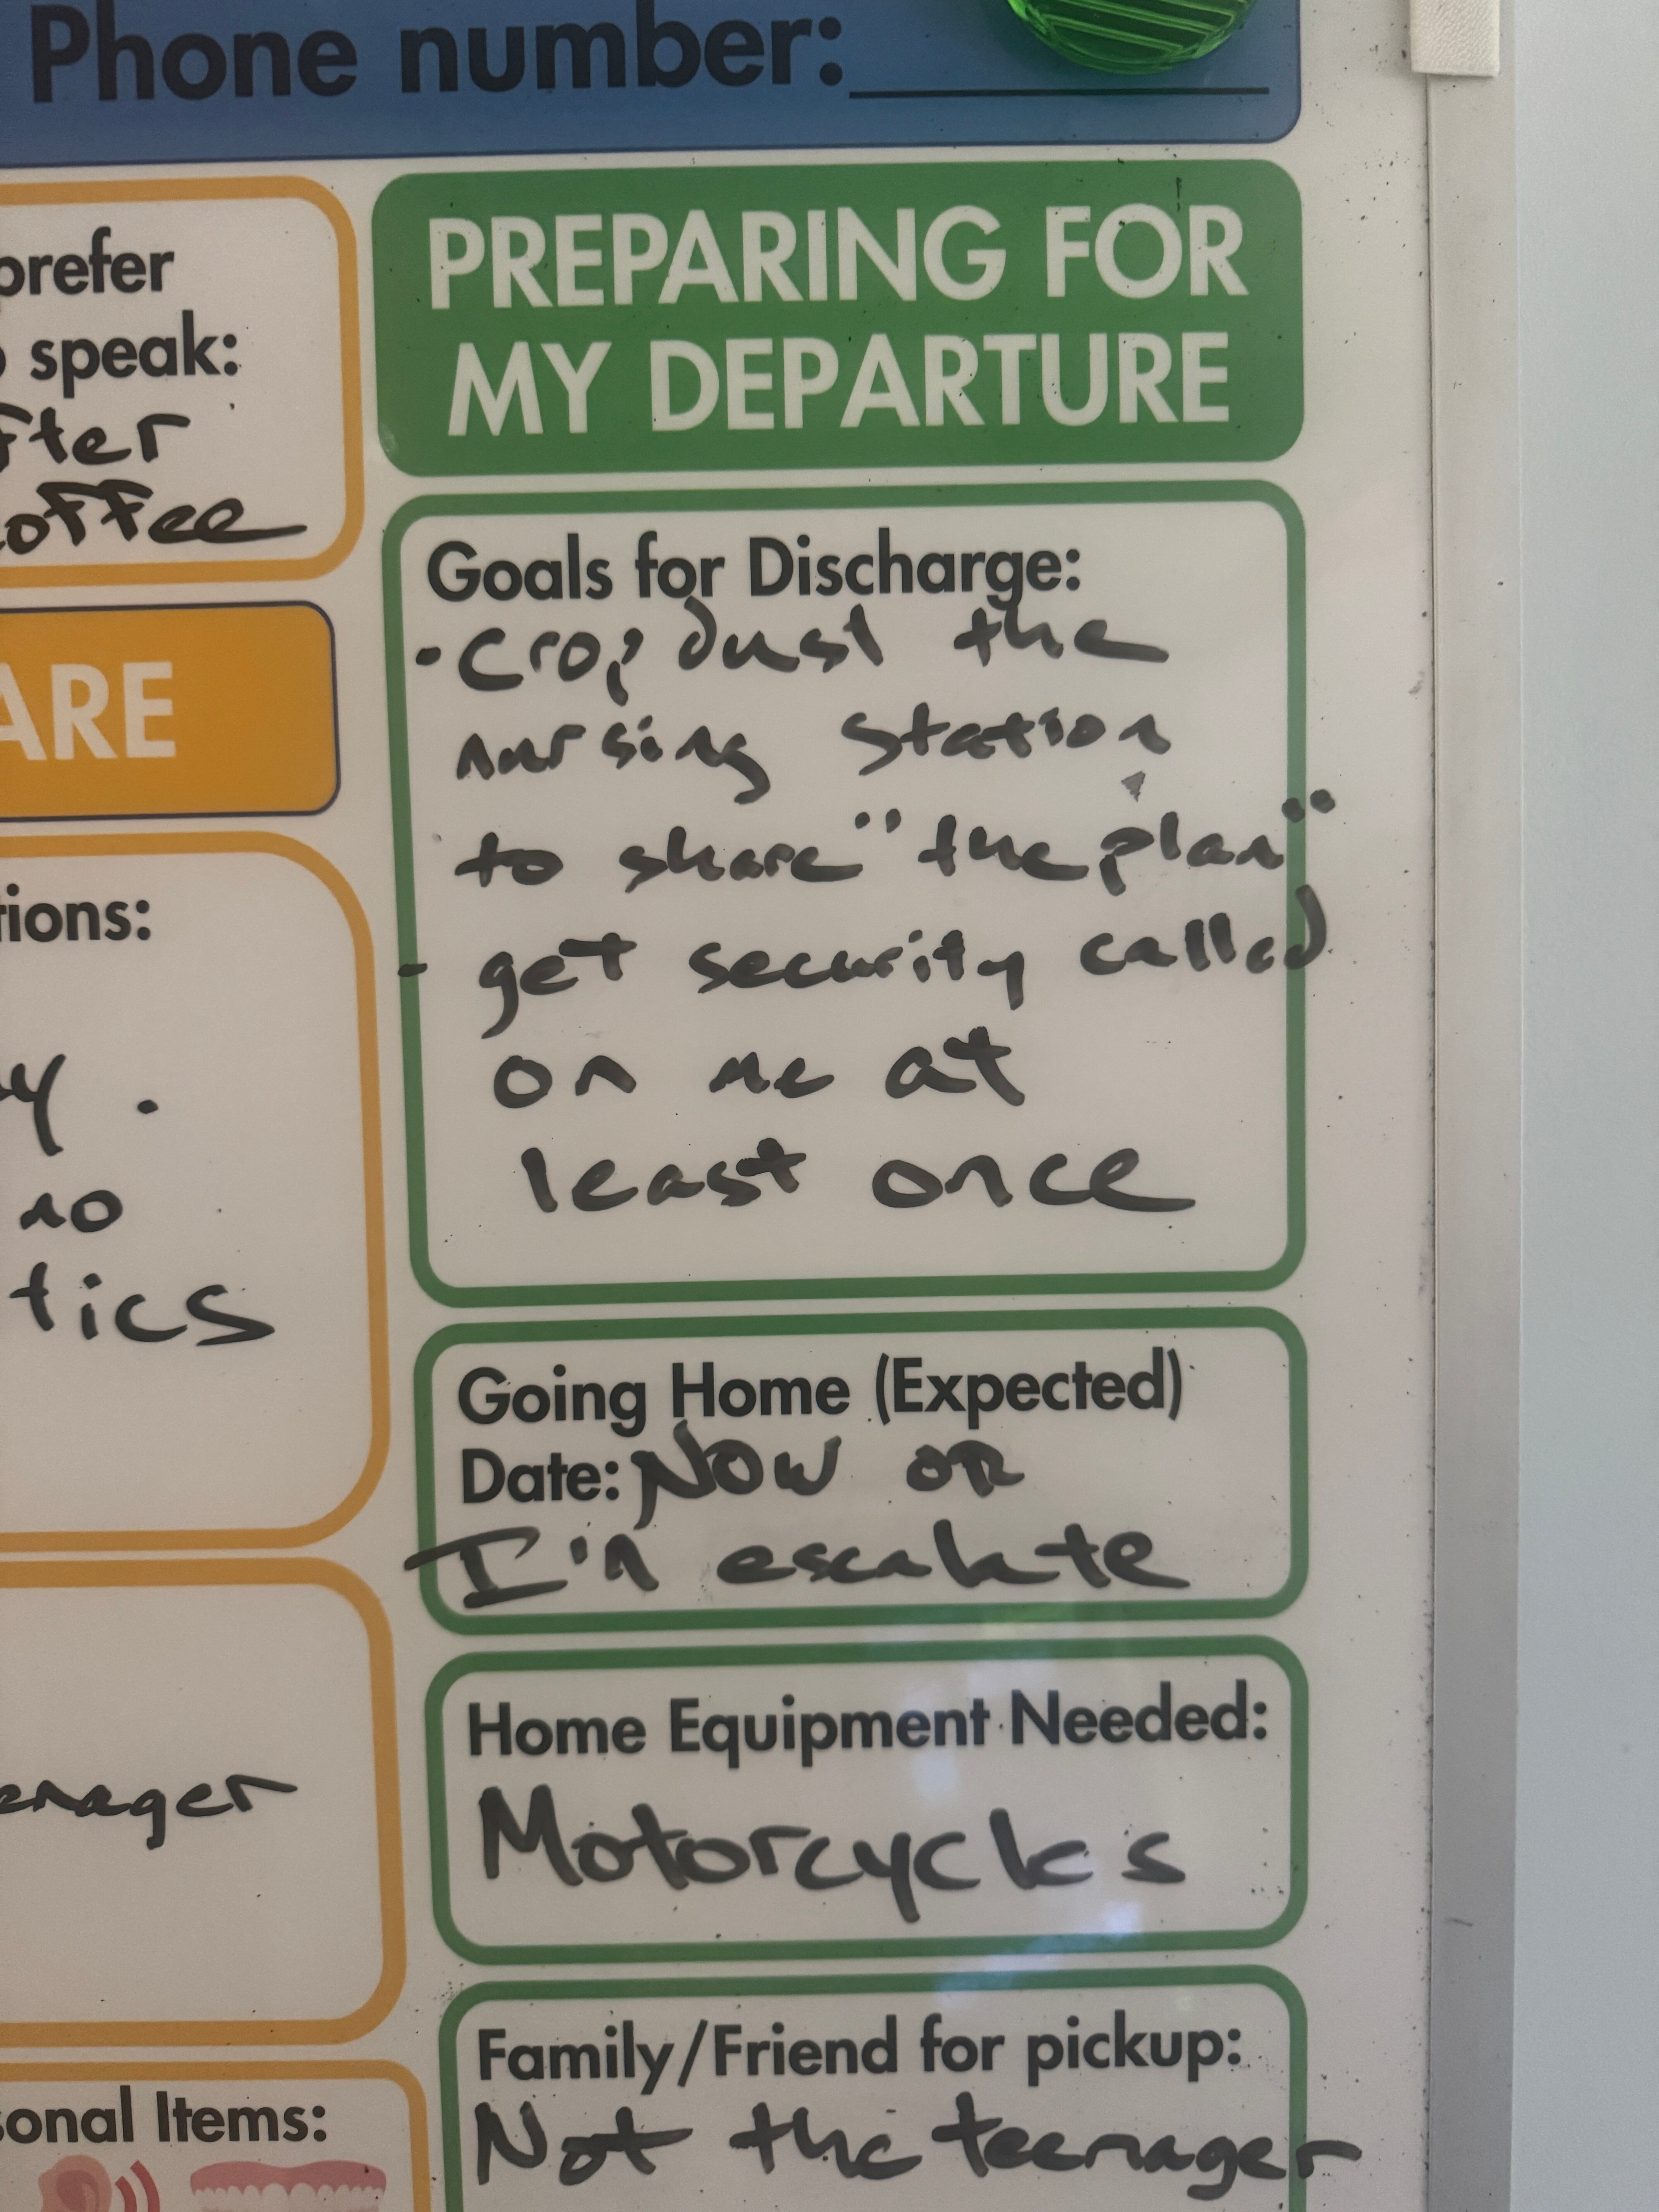 Phone number:
prefer
speak:
fter
offee
ARE
tions:
y.
no
tics
enager
sonal Items:
PREPARING FOR
MY DEPARTURE
Goals for Discharge:
• Crop dust the
nursing station
to share "the plan"
- get security called
on me at
least once
Going Home (Expected)
Date: Now or
I'll escalate
Home Equipment Needed:
Motorcycles
Family/Friend for pickup:
Not the teenager